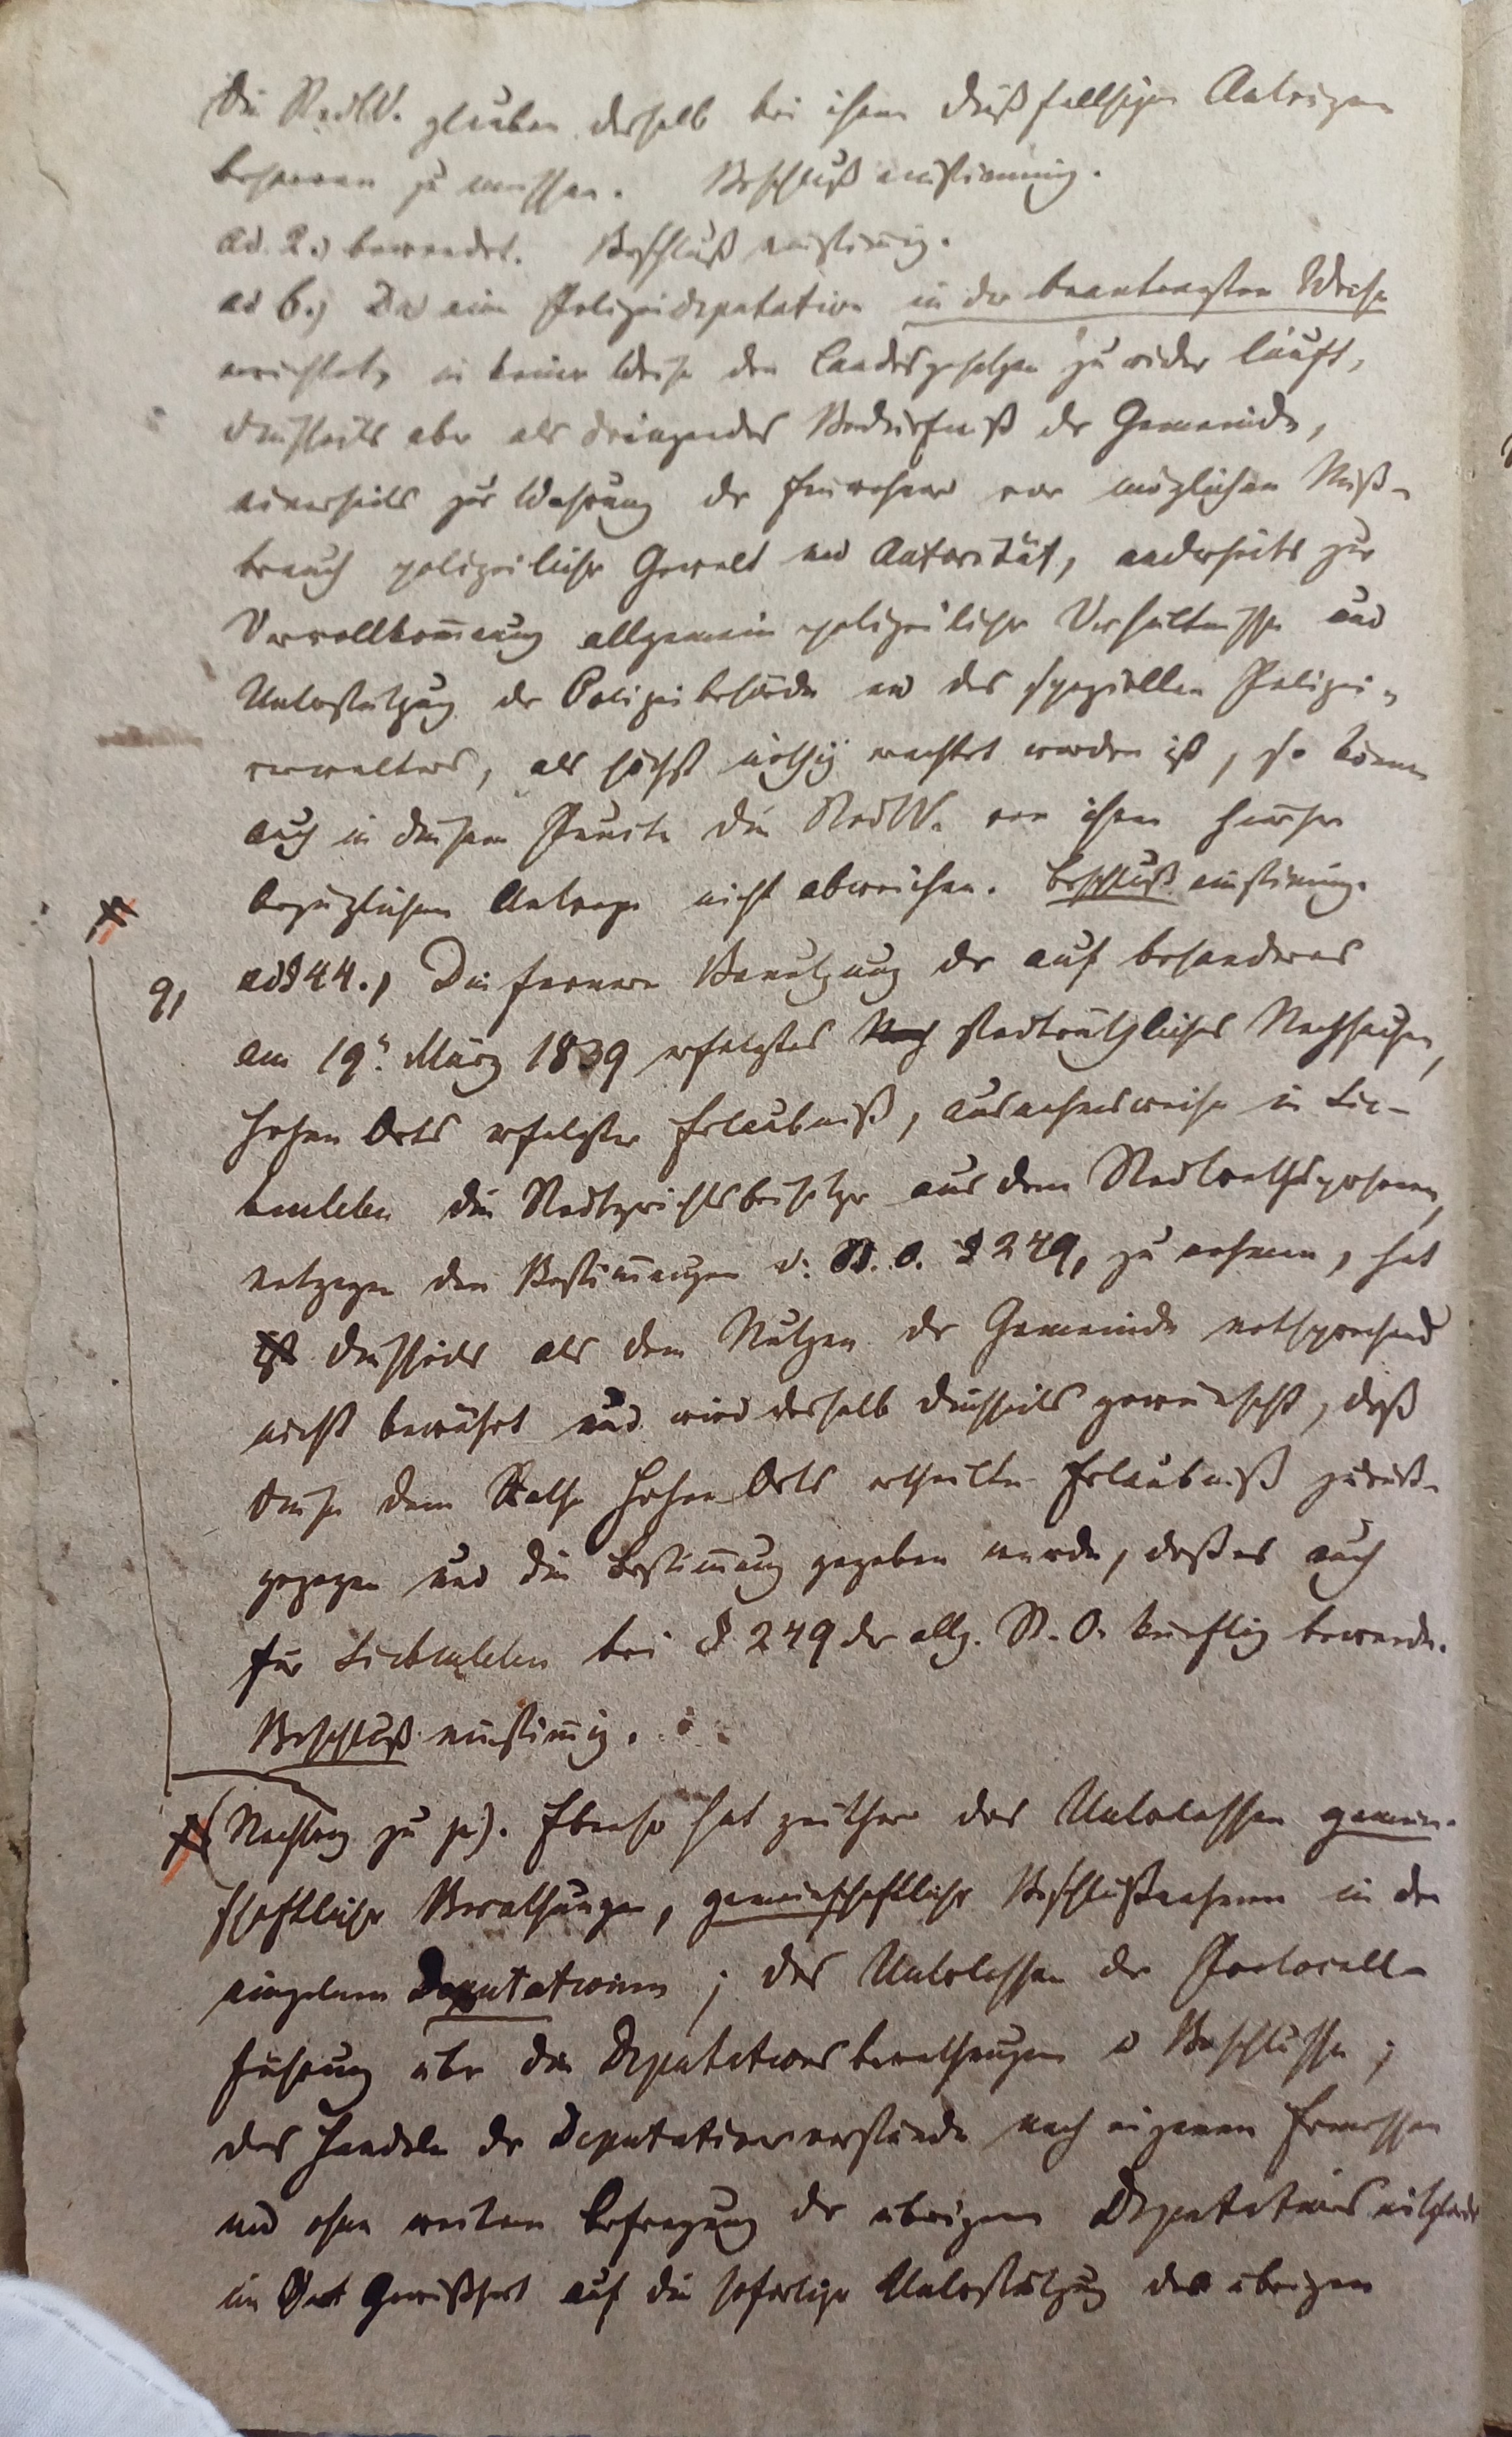 Die StadtV. glauben deshalb bei ihren dießfallsigen Anträgen
beharren zu müssen. Beschluß einstimmig.
ad. 2.) bewendet. Beschluß einstimig.
ad 6.) Da eine Polizeideputation in der beantragten Weise
errichtet, in keiner Weise den Landesgesetzen zu wider läuft,
diesseits aber als dringendes Bedürfniß der Gemeinde,
einerseits zur Wahrung der Einwohner vor möglichen Miß-
brauch polizeilicher Gewalt und Autorität, anderseits zur
Vervollkom̅nung allgemein polizeilicher Verhältnisse und
Unterstützung der Polizeibehörde und des speziellen Polizei-
verwalters, als höchst nöthig erachtet worden ist, so können
auch in diesem Puncte die StadtV. von ihrem hierher
bezüglichen Antrage nicht abweichen. Beschluß einstimig.
q, ad § 44.) Die fernere Benutzung der auf besonderes
am 19. März 1839 erfolgtes stadträthliches Nachsuchen,
hohen Orts erfolgter Erlaubniß, ausnahmsweise in Lie-
die Stadtgerichtsbeisitzer aus dem Stadtrathspersonen,
entgegen den Bestim̅ungen d. St. O. § 249, zu nehmen, hat
diesseits als dem Nutzen der Gemeinde entsprechend
nicht bewährt und wird deshalb diesseits gewünscht, daß
diese dem Rathe hohen Orts ertheilte Erlaubniß zurück-
gezogen und die Bestim̅ung gegeben werde, daß es auch
für bei § 249 der allg. St. O. künftig bewende.
Beschluß einstim̅ig.
(Nachtrag zu p). Ebenso hat zeither das Unterlassen gemein-
schaftlicher Berathungen, gemeinschaftlicher Beschlußnahmen in den
einzelnen Deputationen; das Unterlassen der Protocoll-
führung über die Deputationsberathungen u Beschlüsse;
das Handeln der Deputationsvorstände nach eigenem Ermessen
und ohne weitere Befragung der übrigen Deputationsmitglieder
in Gewißheit auf die sofortige Unterstützung der übrigen